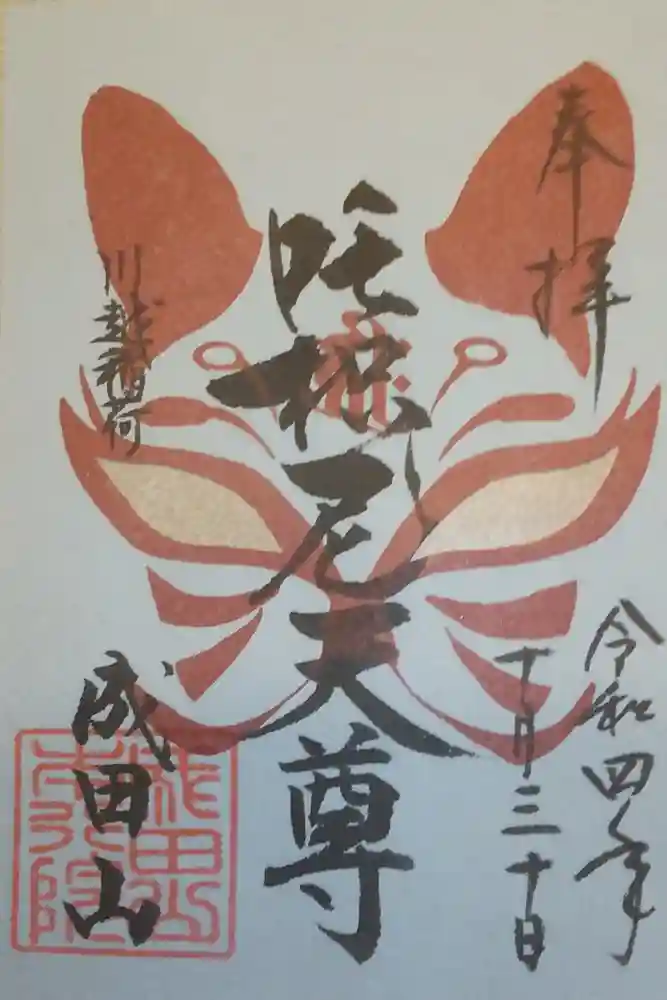 奉拝
令和四年
十月三十日
吒枳尼天尊
川越稲荷
成田山
成田山本行院